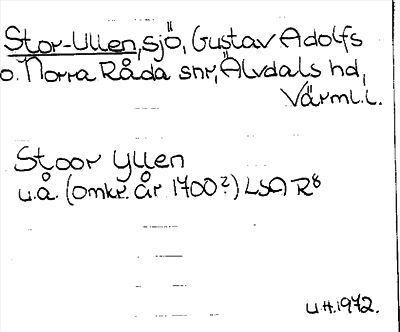 Stor-Ullen, sjö, Gustav Adolfs
o. Norra Råda snr, Älvdals hd,
Värml.l.
Stoor Yllen
u.å. (omkr. år 1700?) LSA R8
U.H. 1972.